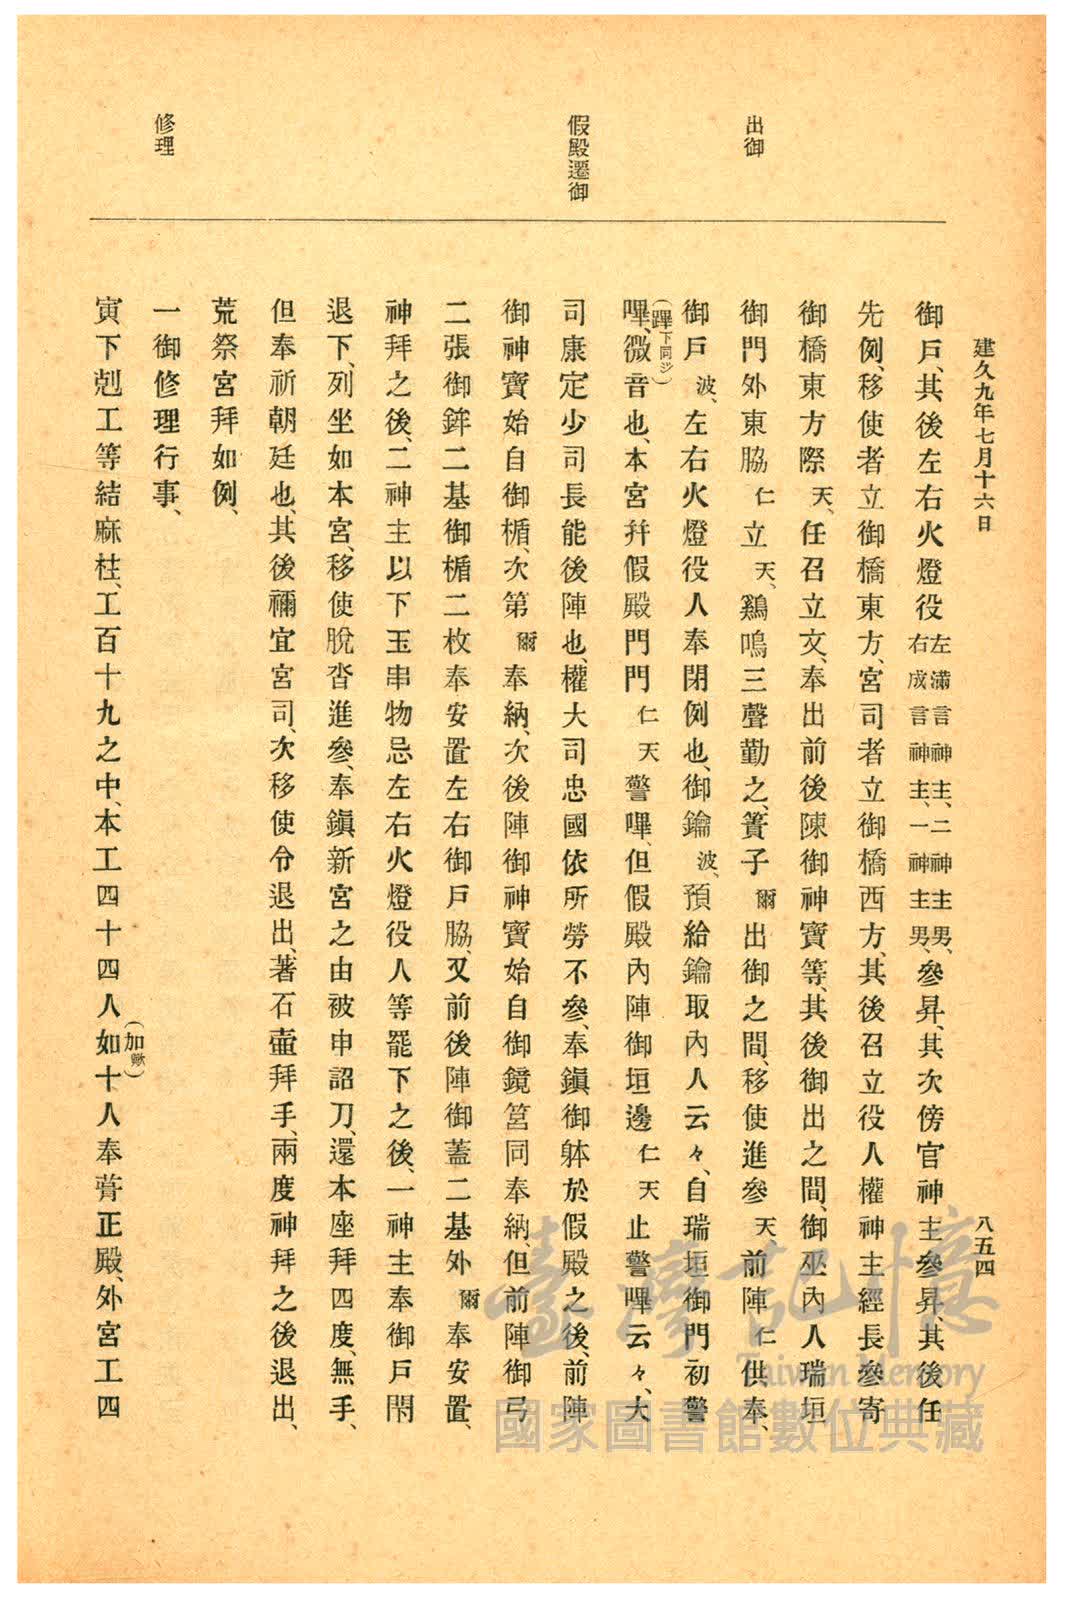 建久九年七月十六日
八五四
出御
假殿遷御
修理
御戶、其後左右火燈役左滿言神主、二神主男、右成言神主、一神主男、參昇、其次傍官神主參昇、其後任
先例、移使者立御橋東方、宮司者立御橋西方、其後召立役人權神主經長參寄
御橋東方際天、任召立文、奉出前後陳御神寶等、其後御出之間、御巫內人瑞垣
御門外東脇仁立天、鷄鳴三聲勤之、簀子爾出御之間、移使進參天、前陣仁供奉、
御戶波、左右火燈役人奉閉例也、御鑰波、預給鑰取內人云々、自瑞垣御門初警
(蹕下同ジ)
嗶、微音也、本宮幷假殿門門仁天警嗶、但假殿內陣御垣邊仁天止警嗶云々、大
司康定少司長能後陣也、權大司忠國依所勞不參、奉鎭御躰於假殿之後、前陣
御神寶始自御楯、次第爾奉納、次後陣御神寶始自御鏡筥同奉納、但前陣御弓
二張御鉾二基御楯二枚奉安置左右御戶脇、又前後陣御蓋二基外爾奉安置、
神拜之後、二神主以下玉串物忌左右火燈役人等罷下之後、一神主奉御戶閇
退下、列坐如本宮、移使脫沓進參、奉鎭新宮之由被申詔刀、還本座拜四度、無手、
但奉祈朝廷也、其後禰宜宮司、次移使令退出、著石壷拜手、兩度神拜之後退出、
荒祭宮拜如例、
一御修理行事、
寅下剋工等結麻柱、工百十九之中、本工四十四人如十人奉葺正殿、外宮工四
(加歟)
臺灣記憶
Taiwan Memory
國家圖書館數位典藏